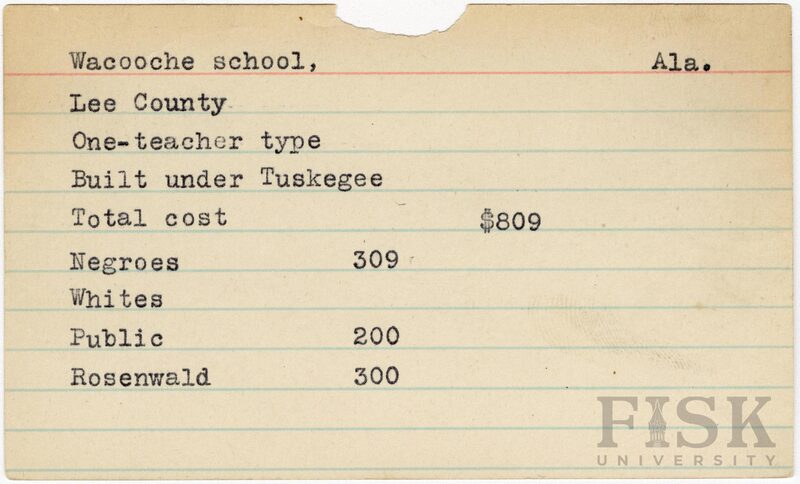 Wacooche school, Ala.
Lee County
One-teacher type
Built under Tuskegee
Total cost $809
Negroes 309
Whites
Public 200
Rosenwald 300
FISK
UNIVERSITY